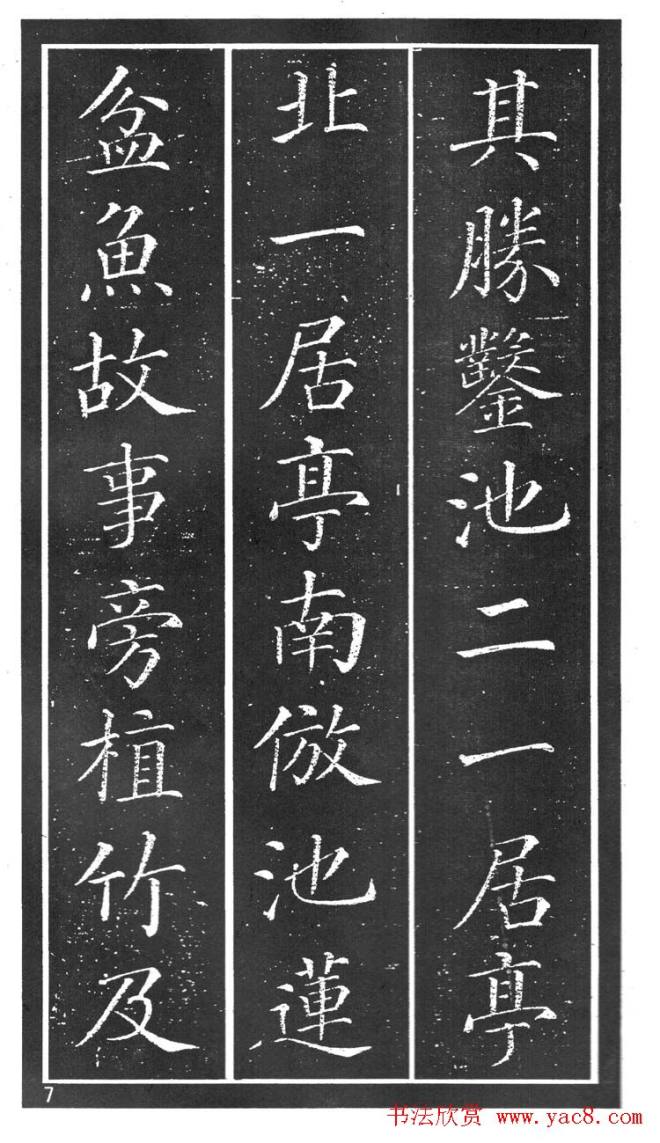 其勝鑿池二一居亭
北一居亭南倣池蓮
盆魚故事旁植竹及
7
书法欣赏 www.yac8.com